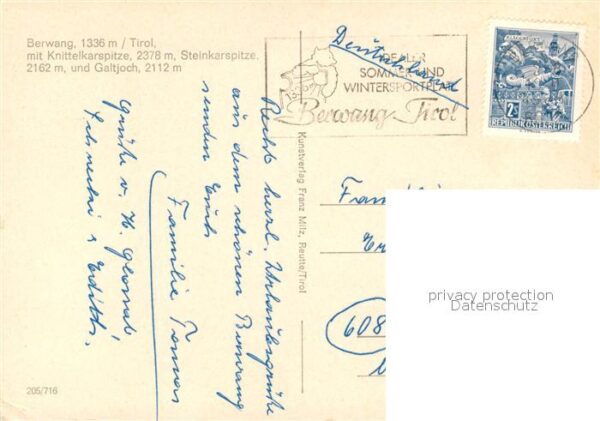 Berwang, 1336 m / Tirol,
mit Knittelkarspitze, 2378 m, Steinkarspitze,
2162 m, und Galtjoch, 2112 m
Deutschland
IDEALER
SOMMER- UND
WINTERSPORTPLATZ
Berwang Tirol
2S
REPUBLIK ÖSTERREICH
Recht herzl. Urlaubsgrüße
aus dem schönen Berwang
senden Euch
Familie
Grüße v. H.
Edith.
Kunstverlag Franz Milz, Reutte/Tirol
Fam
608
privacy protection
Datenschutz
205/716